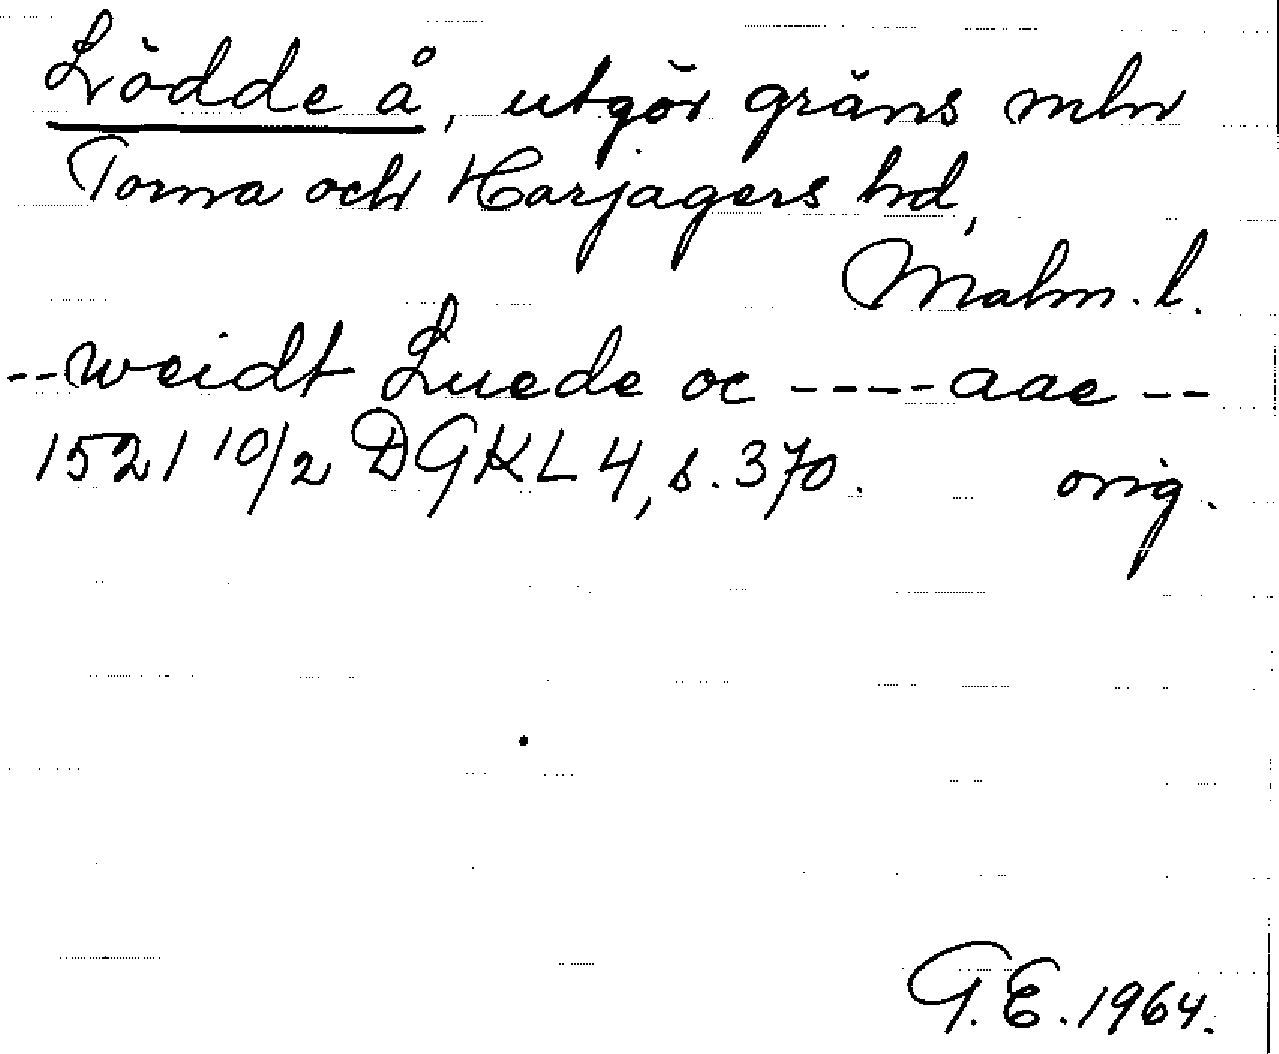 Lödde å, utgör gräns mln
Torna och Harjagers hd,
Malm. l.
--weidt Luede oc ----aae --
1521 10/2 DGKL 4, s. 370. orig.
G.E. 1964.